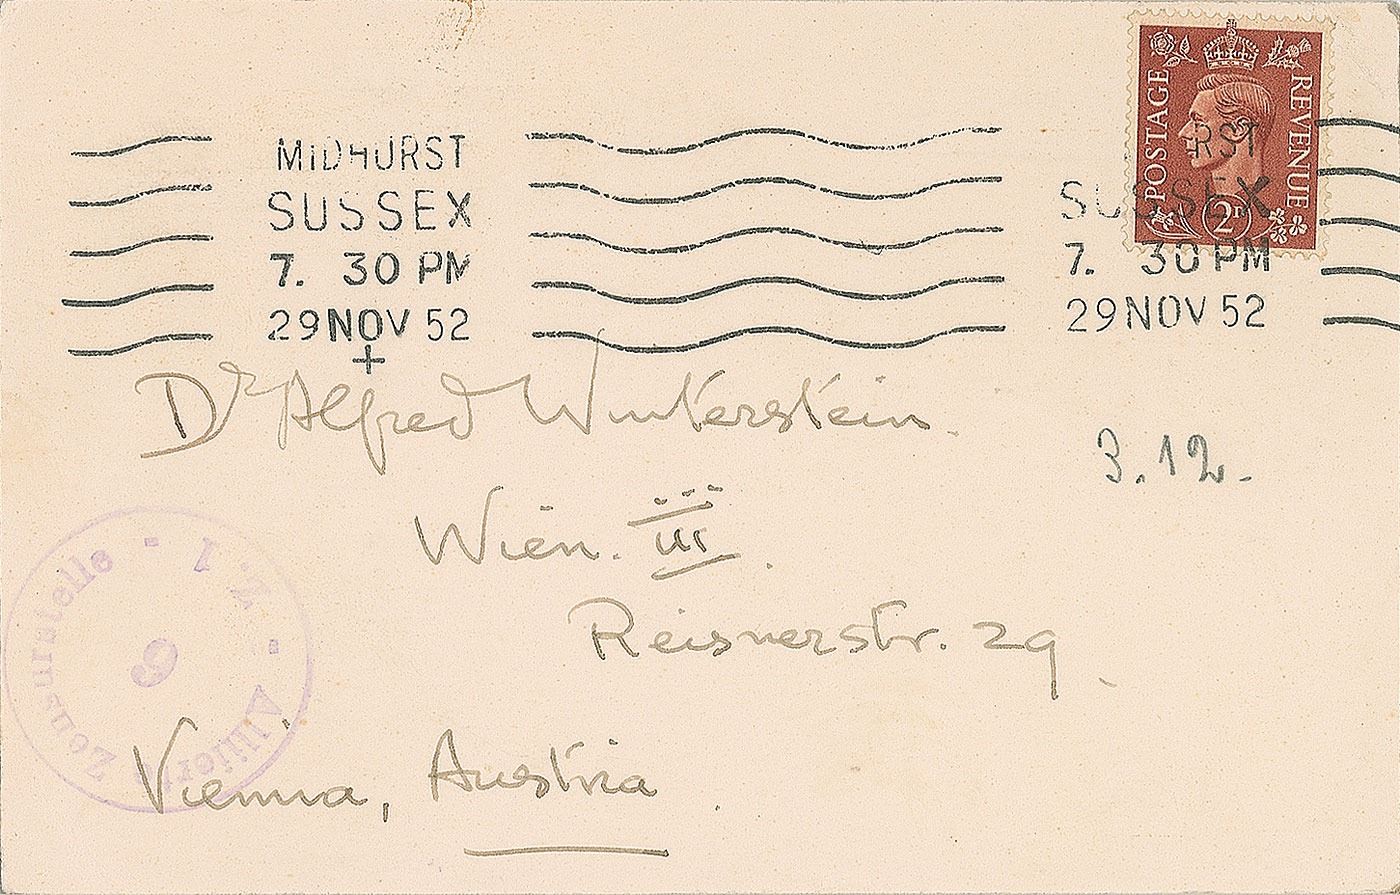 POSTAGE REVENUE
2D
MIDHURST
SUSSEX
7. 30 PM
29 NOV 52
RST
SUSSEX
7. 30 PM
29 NOV 52
Dr Alfred Winterstein
3.12.
Wien. III
Reisnerstr. 29
Vienna, Austria
Alliierte Zensurstelle - I. Z. -
9